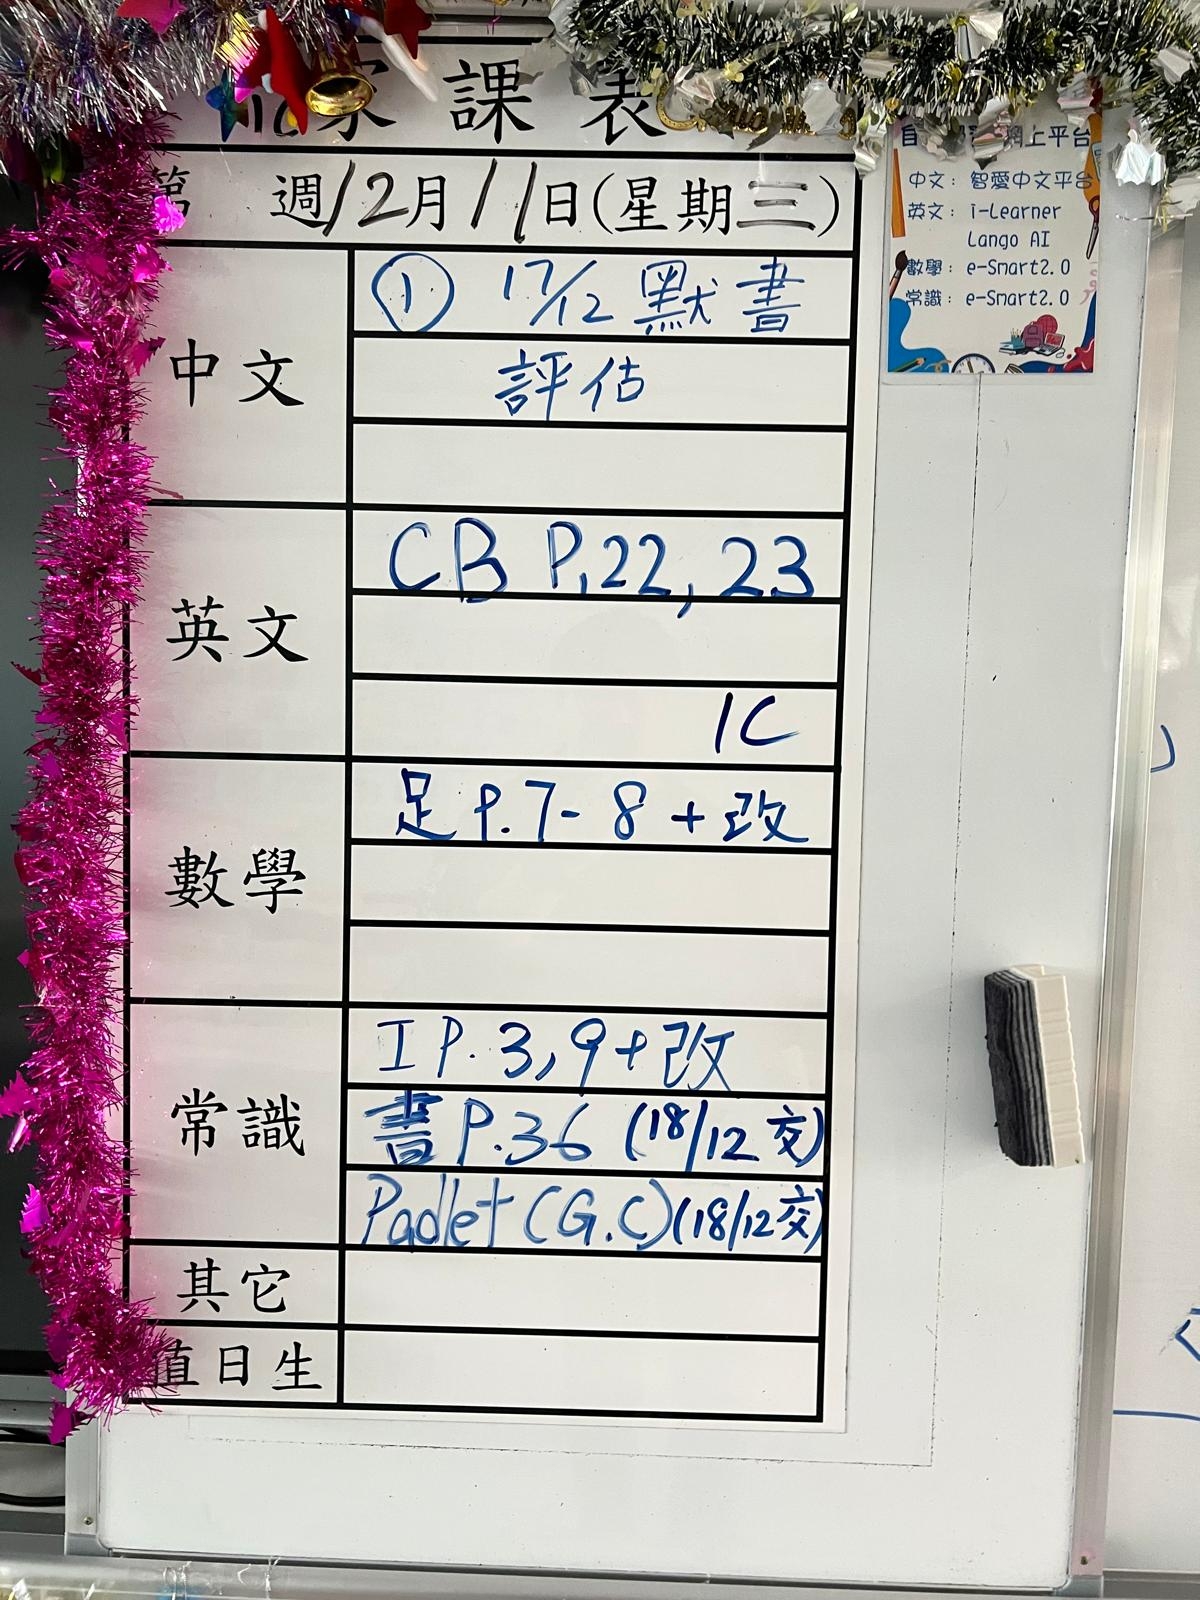 家課表
第 週12月11日(星期三)
中文
① 17/12 默書
評估
英文
CB P.22, 23
1C
數學
足 P.7-8+改
常識
I P.3,9+改
書 P.36 (18/12交)
Padlet (G.C)(18/12交)
其它
值日生
網上平台
中文: 智愛中文平台
英文: i-Learner
Lango AI
數學: e-Smart2.0
常識: e-Smart2.0